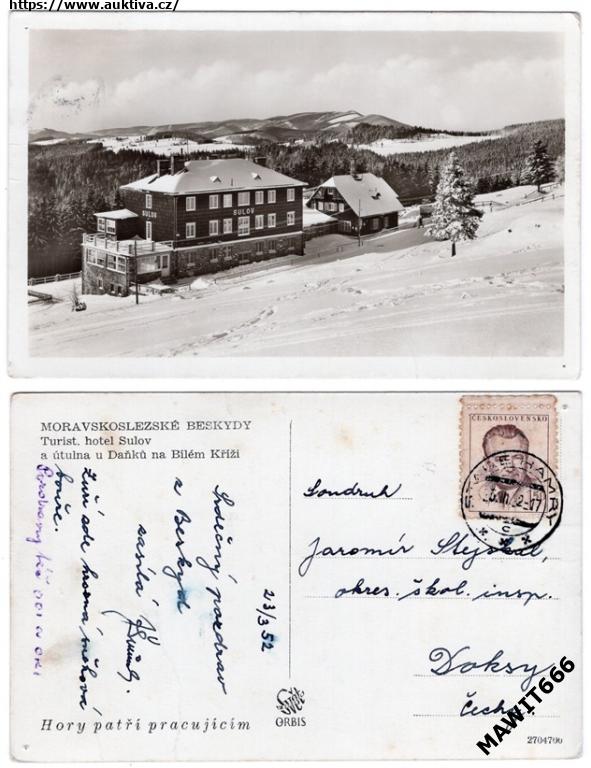 https://www.auktiva.cz/
SULOV
SULOV
MORAVSKOSLEZSKÉ BESKYDY
Turist. hotel Sulov
a útulna u Daňků na Bílém Kříži
Srdečný pozdrav
z Beskyd
zasílá
23/3 52
Zuří zde hrozná sněhová
bouře.
Hory patří pracujícím
ORBIS
ČESKOSLOVENSKO
HAMRY
Soudruh
Jaromír Stejskal,
okres. škol. insp.
Doksy
Čechy.
2704700
MAWIT666